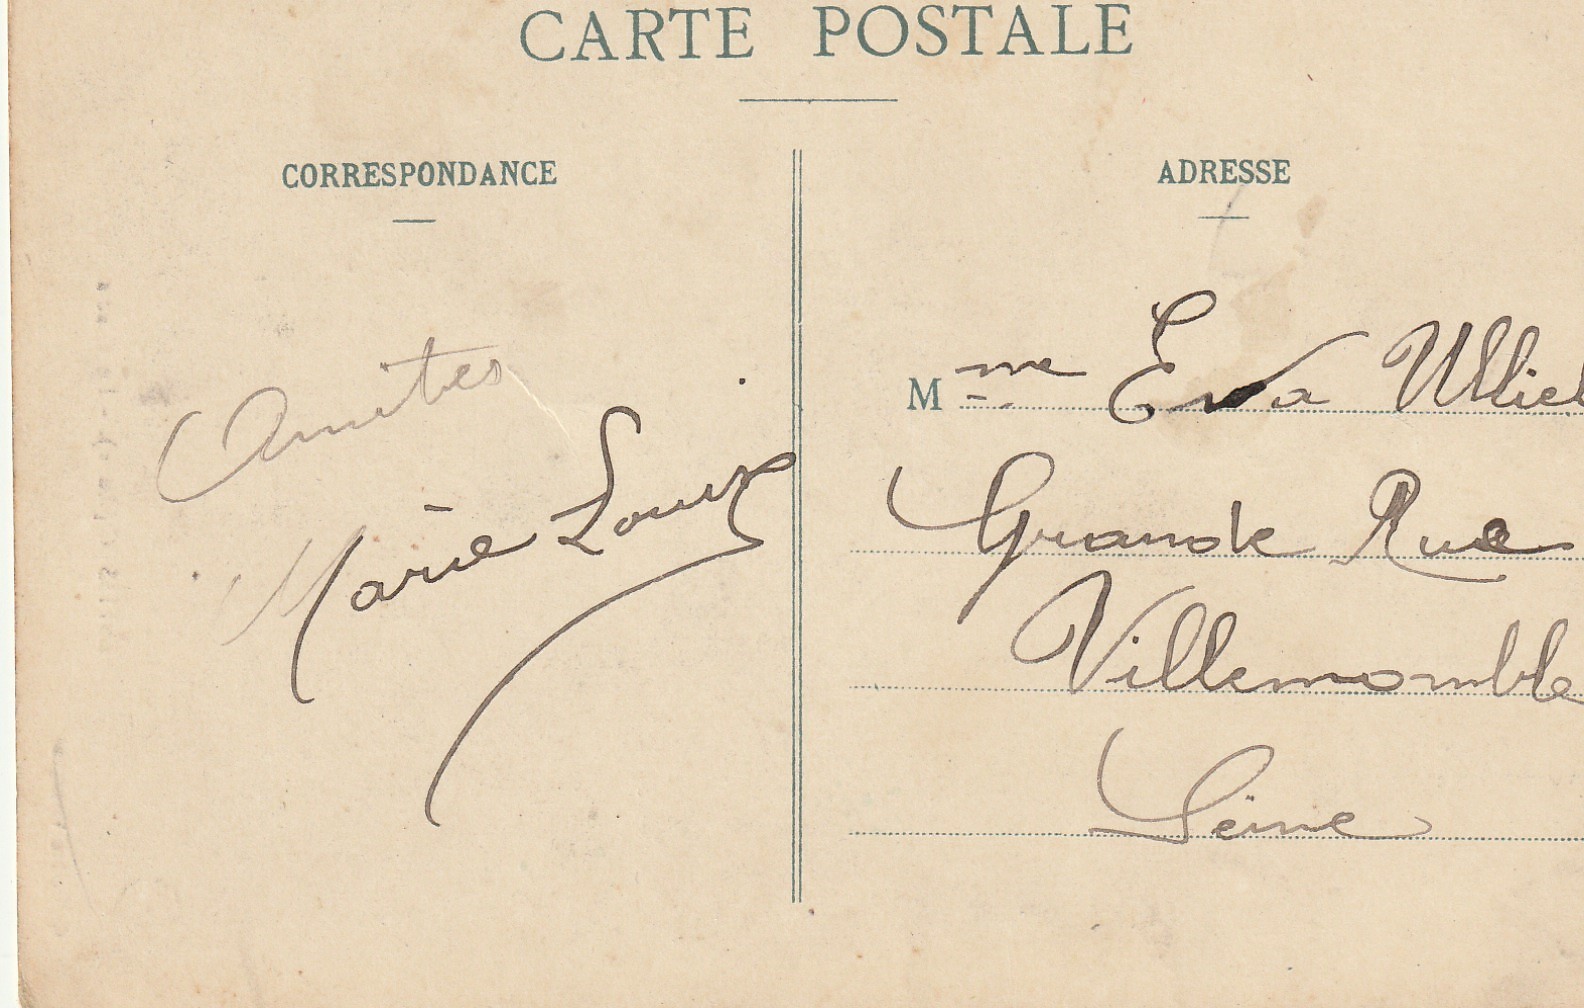 CARTE POSTALE
CORRESPONDANCE
ADRESSE
Amitiés
Marie Louise
Mme Eva Ulliel
Grande Rue
Villemomble
Seine